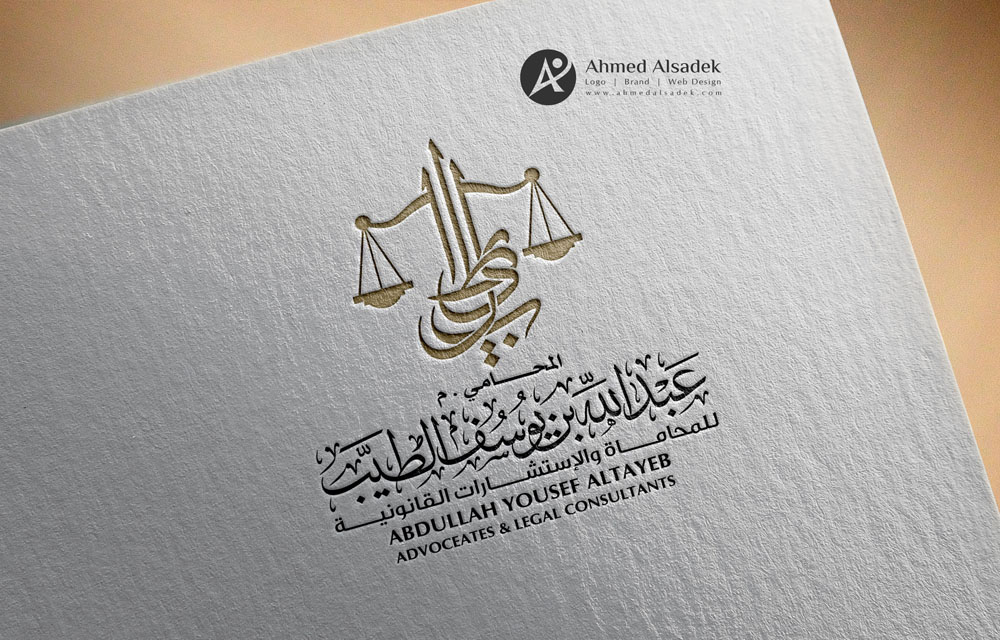 Ahmed Alsadek
Logo | Brand | Web Design
www.ahmedalsadek.com
الطيب
المحامي . م
عَبْدُاللَّه بَن يُوسُف الطيِّبَ
للمحاماة والإستشارات القانونية
ABDULLAH YOUSEF ALTAYEB
ADVOCEATES & LEGAL CONSULTANTS